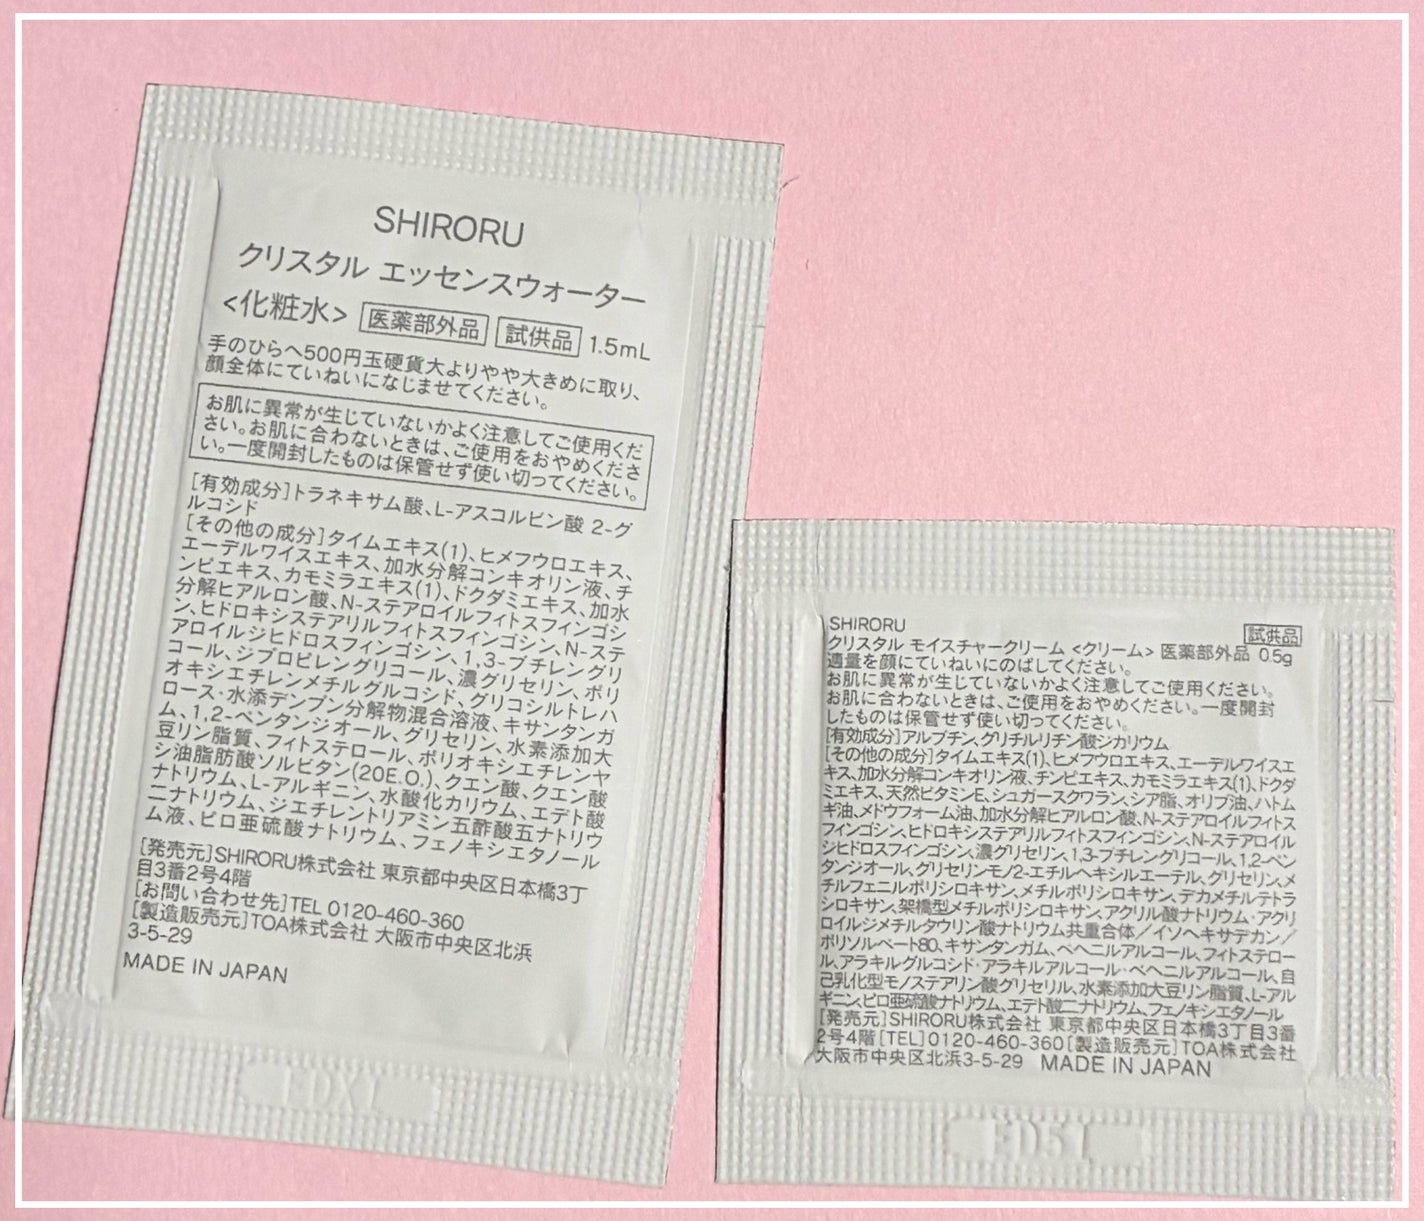 SHIRORU
クリスタル エッセンスウォーター
<化粧水> 医薬部外品 試供品 1.5mL
手のひらへ500円玉硬貨大よりやや大きめに取り、
顔全体にていねいになじませてください。
お肌に異常が生じていないかよく注意してご使用くだ
さい。お肌に合わないときは、ご使用をおやめくださ
い。一度開封したものは保管せず使い切ってください。
[有効成分]トラネキサム酸、L-アスコルビン酸 2-グ
ルコシド
[その他の成分]タイムエキス(1)、ヒメフウロエキス、
エーデルワイスエキス、加水分解コンキオリン液、チ
ンピエキス、カモミラエキス(1)、ドクダミエキス、加水
分解ヒアルロン酸、N-ステアロイルフィトスフィンゴシ
ン、ヒドロキシステアリルフィトスフィンゴシン、N-ステ
アロイルジヒドロスフィンゴシン、1,3-ブチレングリ
コール、ジプロピレングリコール、濃グリセリン、ポリ
オキシエチレンメチルグルコシド、グリコシルトレハ
ロース・水添デンプン分解物混合溶液、キサンタンガ
ム、1,2-ペンタンジオール、グリセリン、水素添加大
豆リン脂質、フィトステロール、ポリオキシエチレンヤ
シ油脂肪酸ソルビタン(20E.O.)、クエン酸、クエン酸
ナトリウム、L-アルギニン、水酸化カリウム、エデト酸
二ナトリウム、ジエチレントリアミン五酢酸五ナトリウ
ム液、ピロ亜硫酸ナトリウム、フェノキシエタノール
[発売元]SHIRORU株式会社 東京都中央区日本橋3丁
目3番2号4階
[お問い合わせ先]TEL 0120-460-360
[製造販売元]TOA株式会社 大阪市中央区北浜
3-5-29
MADE IN JAPAN
SHIRORU
試供品
クリスタル モイスチャークリーム <クリーム> 医薬部外品 0.5g
適量を顔にていねいにのばしてください。
お肌に異常が生じていないかよく注意してご使用ください。
お肌に合わないときは、ご使用をおやめください。一度開封
したものは保管せず使い切ってください。
[有効成分]アルブチン、グリチルリチン酸ジカリウム
[その他の成分]タイムエキス(1)、ヒメフウロエキス、エーデルワイスエ
キス、加水分解コンキオリン液、チンピエキス、カモミラエキス(1)、ドクダ
ミエキス、天然ビタミンE、シュガースクワラン、シア脂、オリブ油、ハトム
ギ油、メドウフォーム油、加水分解ヒアルロン酸、N-ステアロイルフィトス
フィンゴシン、ヒドロキシステアリルフィトスフィンゴシン、N-ステアロイル
ジヒドロスフィンゴシン、濃グリセリン、1,3-ブチレングリコール、1,2-ペン
タンジオール、グリセリンモノ2-エチルヘキシルエーテル、グリセリン、メ
チルフェニルポリシロキサン、メチルポリシロキサン、デカメチルテトラ
シロキサン、架橋型メチルポリシロキサン、アクリル酸ナトリウム・アクリ
ロイルジメチルタウリン酸ナトリウム共重合体/イソヘキサデカン/
ポリソルベート80、キサンタンガム、ベヘニルアルコール、フィトステロー
ル、アラキルグルコシド・アラキルアルコール・ベヘニルアルコール、自
己乳化型モノステアリン酸グリセリル、水素添加大豆リン脂質、L-アル
ギニン、ピロ亜硫酸ナトリウム、エデト酸二ナトリウム、フェノキシエタノール
[発売元]SHIRORU株式会社 東京都中央区日本橋3丁目3番
2号4階[TEL]0120-460-360[製造販売元]TOA株式会社
大阪市中央区北浜3-5-29 MADE IN JAPAN